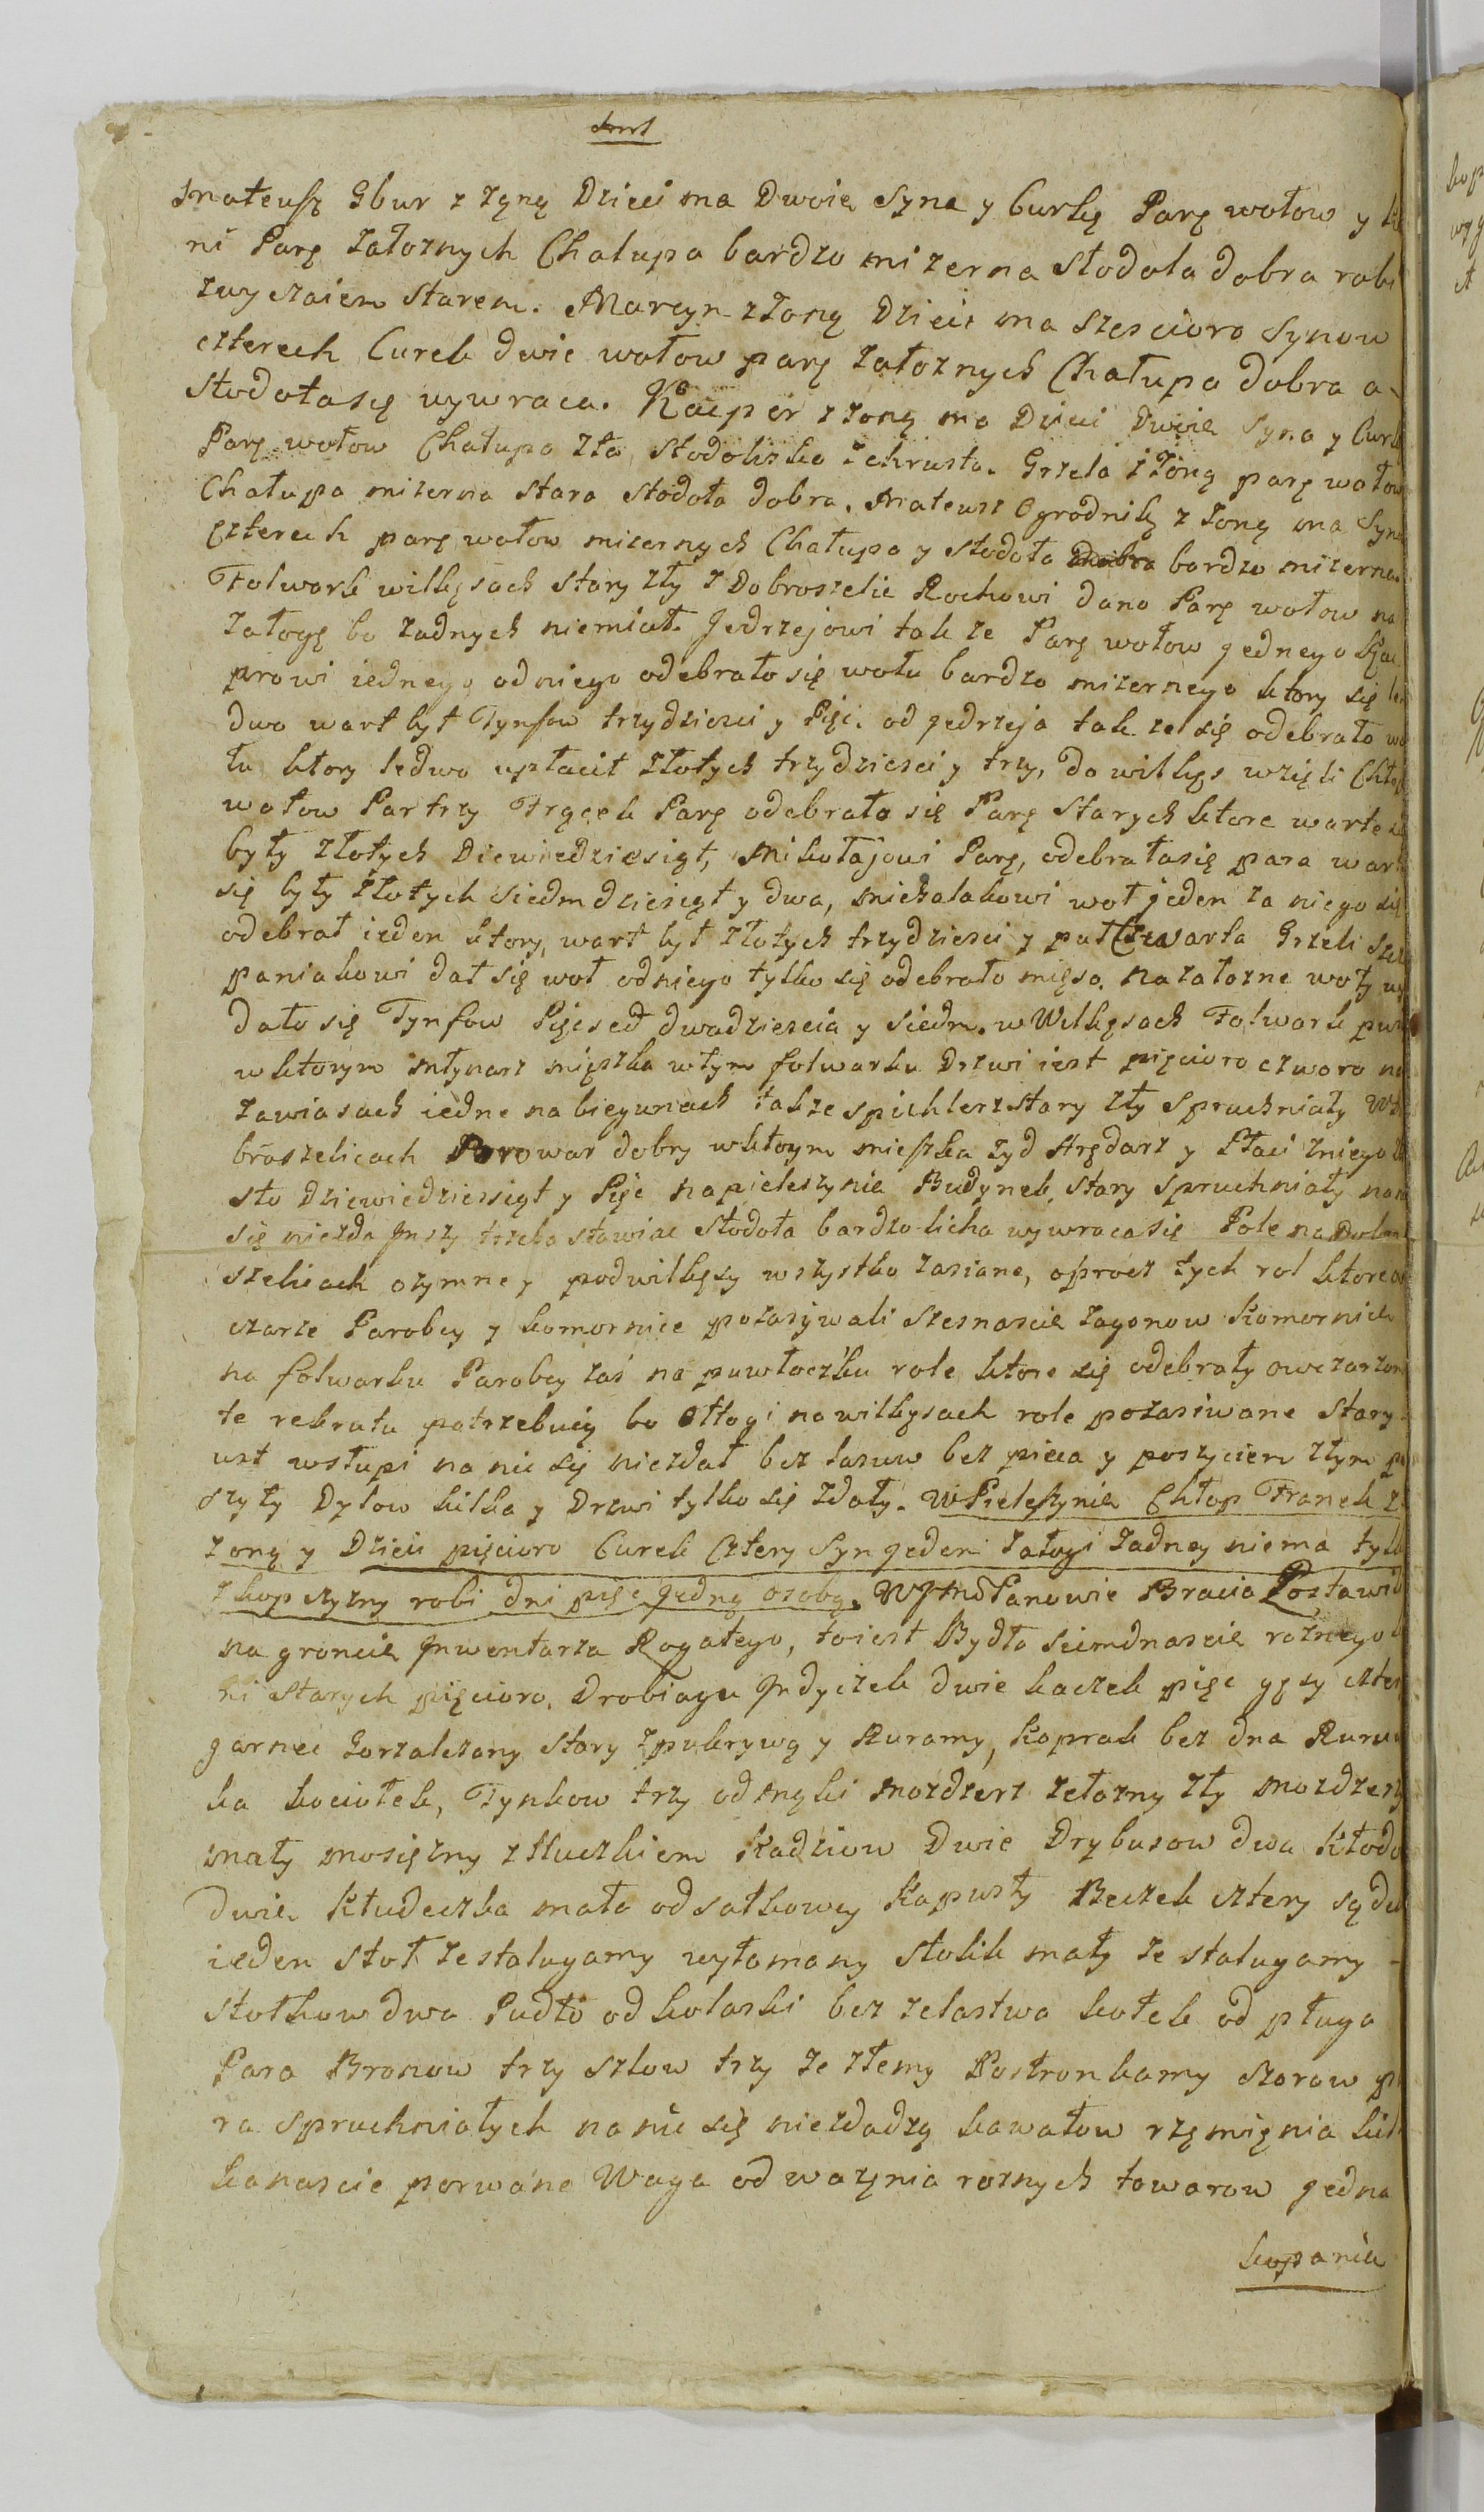 Mateusz Gbur z Zęnę Dzieci ma Dwoie Syna y Curkę Parę wołow y
ni Parę Załoznych Chalupa bardzo mizerna stodola dobra robi
zwyczaiem starem. Marcyn z Zonę Dzieci ma szescioro Synow
czterech Curek dwie wołow parę załoznych Chałupa dobra a
stodoła się wywraca. Kacper z Zonę ma Dzieci Dwoie Syna y Curk
Parę wołow Chałupa zła stodolisko z chrustu. Grzela z Zonę parę wołow
Chałupa mizerna stara stodoła dobra. Mateusz Ogrodnik z Zonę ma Syn
Czterech parę wołow mizernych Chałupa y stodoła bardzo mizerna
Folwark wilkęsach stary zły z Dobroszelic Rochowi dano Parę wołow na
załogę bo zadnych niemiał. Jedrzejowi tak ze Parę wołow jednego Kac
prowi iednego od niego odebrało się wołu bardzo mizernego ktory się le
dwo wart był Tynfow trzydziesci y Pięc. od jedrzeja tak ze się odebrało wo
łu ktory ledwo upłacił złotych trzydziesci y trzy, do wilkęs wzięli Chłop
wołow Par trzy Frącek Parę odebrała się Parę starych ktore warte
były złotych Dziewiedziesiąt, Mikołajowi Parę, odebrała się para wart
się były złotych siedmdziesiąt y dwa, michalakowi woł jeden za niego się
odebrał ieden ktory, wart był złotych trzydziesci y puł Czwarta Grzeli Szc
paniakowi dał się woł od niego tylko się odebrało mięso. na załozne woły wy
dało się Tynfow Pięcsed dwadziescia y siedm. w Wilkęsach Folwark
w ktorym młynarz mięszka w tym folwarku Drzwi iest pięcioro czworo na
zawiasach iedne na biegunach także spichlerz stary zły spruchniały W
broszelicach Browar dobry w ktoym mieszka zyd Aręndarz y Płaci z niego
sto dziewiedziesiąt y Pięc na pieleszynie Budynek stary spruchniały na ni
się niezda Juszy trzeba stawiac stodoła bardzo licha wywraca się Pole na Dobro
szelicach ozymne y pod wilkęsy wszystko zasiane, oprocz tych rol ktore ow
czarze Parobcy y komornice pozasywali szesnascie zagonow Komornice
na folwarku Parobcy zas na puwłoczku role ktore się odebrały owczarzom
te rekrutu potrzebuię bo Otłogi na wilkęsach role pozasiwane stary
ust wstupi na nic się niezdał bez lasuw bez pieca y poszyciem złym p
szyty Dylow kilka y Drzwi tylko się zdały. W Pieleszynie Chłop Franek z
zonę y Dzieci pięcioro Curek Cztery Syn jeden załogi zadney niema tylk
z kopczyzny robi dni pięc jednę osobę. WJmć Panowie Bracia Postawili
na gruncie Jnwentarza Rogatego, to iest Bydła siemdnascie roznego
ni starych pięcioro. Drobiazgu Jndyczek dwie kaczek pięc gęsy czter
garnec Gorzalczany stary z pokrywą y Ruramy, koprak bez dna Rurow
ka kociołek, Tynkow trzy od mąki mozdzerz zelazny zły mozdzerz
mały mosięzny z tłuczkiem Kadziow Dwie Drybusow dwa Kłodo
dwie Kłudeczka mała od sałkowey Kapusty Beczek cztery sądek
ieden stoł ze stalugamy wyłamany stolik mały ze stalugamy
stołkow dwa Pudło od kolaski bez zelastwa kołek od pługa
Para Bronow trzy szlow trzy ze złemy Postronkamy szorow pa
ra spruchniałych na nic się niezdadzą kawałow rzęmięnia kil
kanascie porwane Waga od wazęnia roznych towarow jedna
kopanie